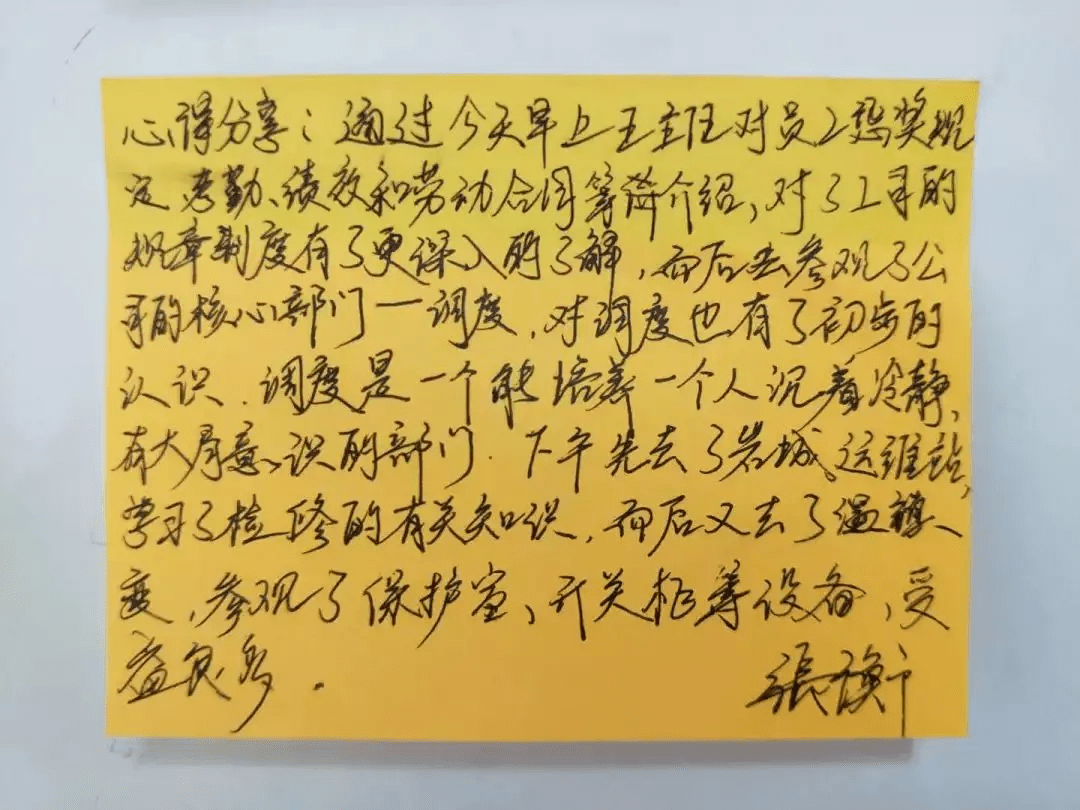 心得分享：通过今天早上王主班对员工惩奖规
定、考勤、绩效和劳动合同等等介绍，对了公司的
规章制度有了更深入的了解，而后去参观了公
司的核心部门一调度，对调度也有了初步的
认识．调度是一个能培养一个人沉着冷静、
有大局意识的部门．下午先去了岩城运维站，
学习了检修的有关知识，而后又去了温
变，参观了保护室、开关柜等设备，受
益良多．
張衡